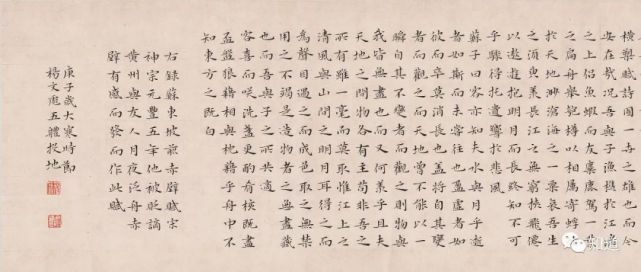 橫槊賦詩固一世之雄也而今
安在哉況吾與子漁樵於江渚
之上侶魚蝦而友麋鹿駕一葉
之扁舟舉匏樽以相屬寄蜉蝣
於天地渺滄海之一粟哀吾生
之須臾羨長江之無窮挾飛僊
以遨遊抱明月而長終知不可
乎驟得托遺響於悲風
蘇子曰客亦知夫水與月乎逝
者如斯而未嘗往也盈虛者如
彼而卒莫消長也蓋將自其變
者而觀之而天地曾不能以一
瞬自其不變者而觀之則物與
我皆無盡也而又何羨乎且夫
天地之間物各有主苟非吾之
所有雖一毫而莫取惟江上之
清風與山間之明月耳得之而
為聲目遇之而成色取之無禁
用之不竭是造物者之無盡藏
也而吾與子之所共適
客喜而咲洗盞更酌肴核既盡
盃盤狼藉相與枕藉乎舟中不
知東方之既白
右錄蘇東坡前赤壁賦宋
神宗元豐五年他被貶謫
黃州與友人月夜泛舟赤
壁有感而發而作此賦
庚子歲大寒時節
楊文彪五體投地